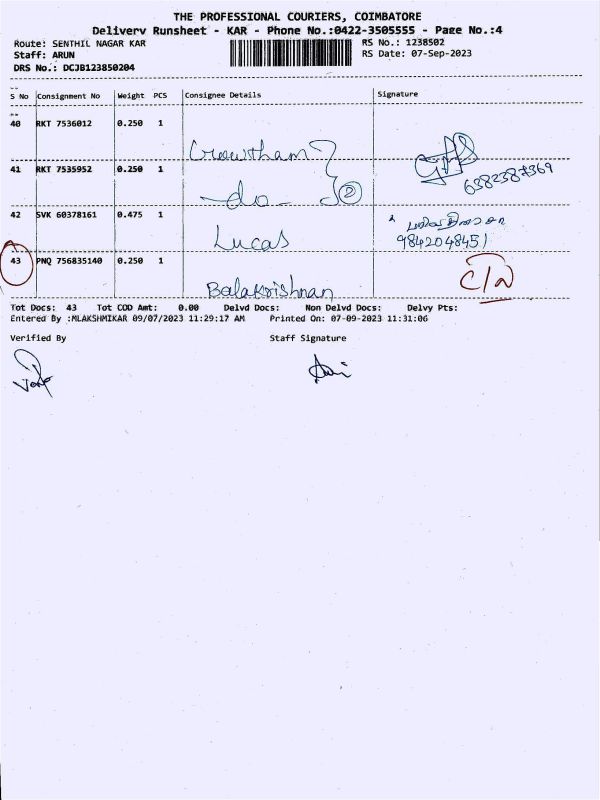 THE PROFESSIONAL COURIERS, COIMBATORE
Delivery Runsheet - KAR - Phone No.:0422-3505555 - Page No.:4
Route: SENTHIL NAGAR KAR
RS No.: 1238502
Staff: ARUN
RS Date: 07-Sep-2023
DRS No.: DCJB123850204
S No Consignment No Weight PCS Consignee Details Signature
40 RKT 7536012 0.250 1
Gowtham
41 RKT 7535952 0.250 1
6382387369
-do- 2
42 SVK 60378161 0.475 1
Lucas
9842048451
43 PNQ 756835140 0.250 1
Balakrishnan
Tot Docs: 43 Tot COD Amt: 0.00 Delvd Docs: Non Delvd Docs: Delvy Pts:
Entered By :MLAKSHMIKAR 09/07/2023 11:29:17 AM Printed On: 07-09-2023 11:31:06
Verified By Staff Signature